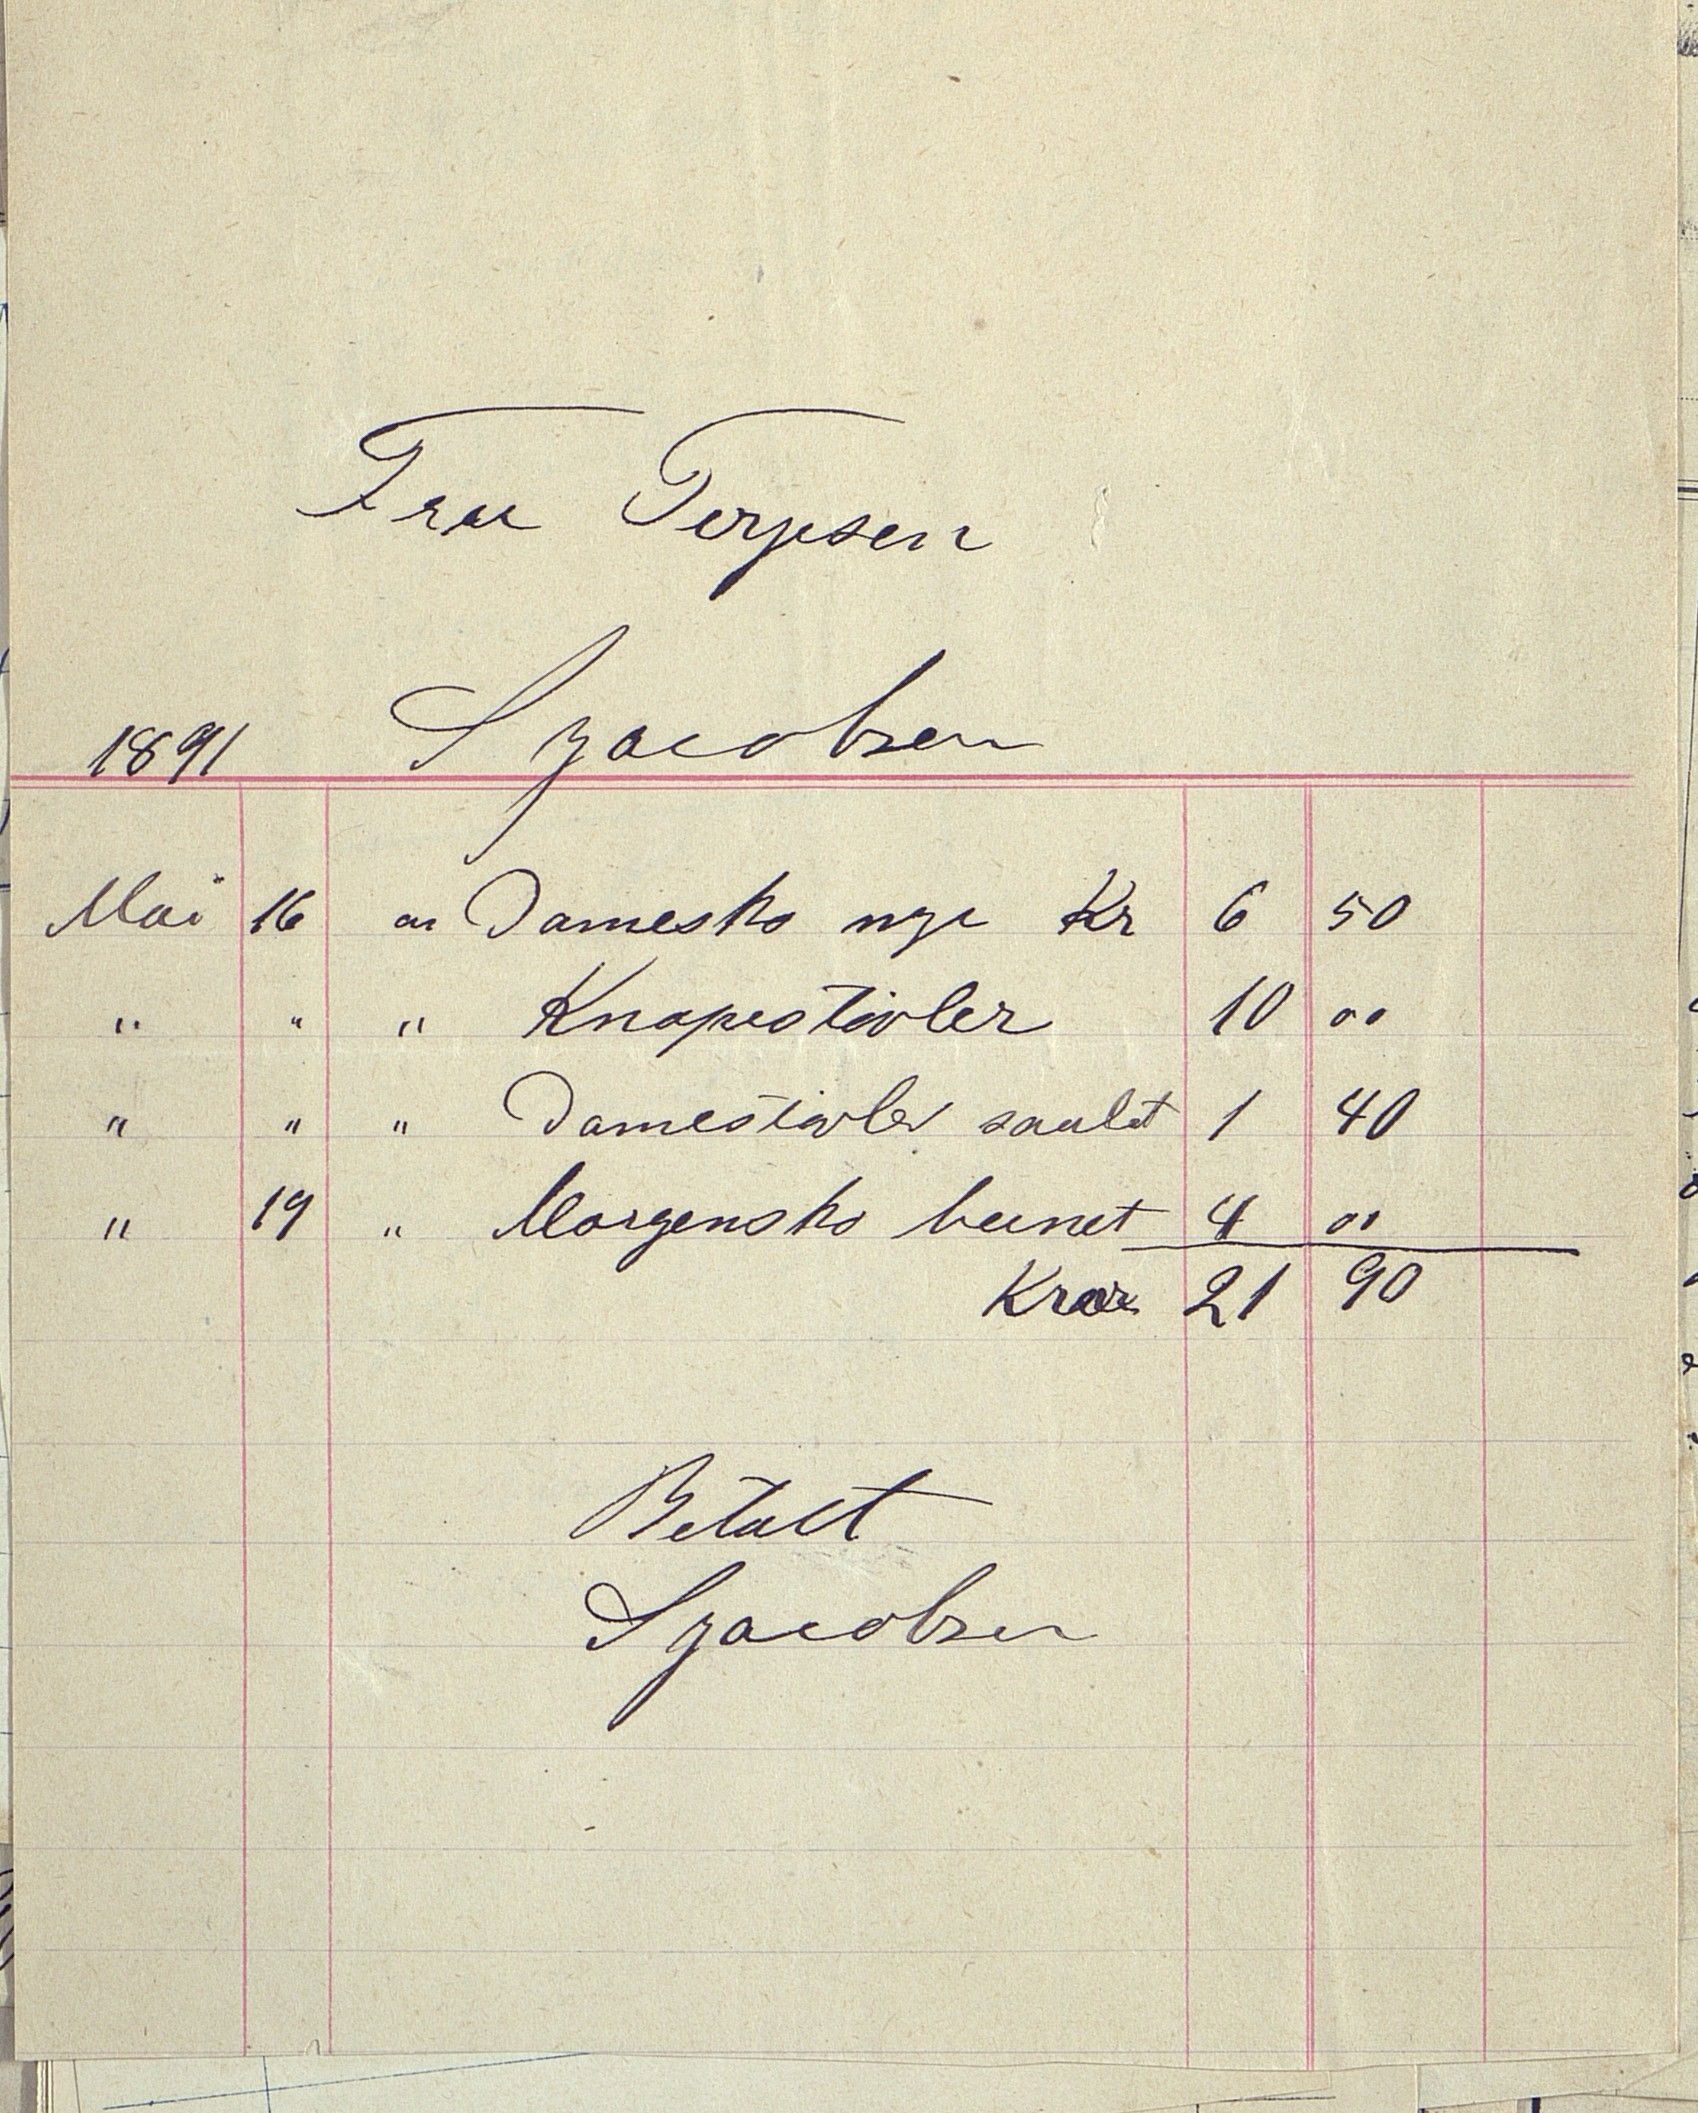 Frue Terjesen
1891 S Jacobsen
Mai 16 an Damesko nye Kr 6 50
" " " Knapestövler 10 00
" " " Damestövler saalet 1 40
" 19 " Morgensko 4 00
Kroner 21 90
Betalt
S Jacobsen